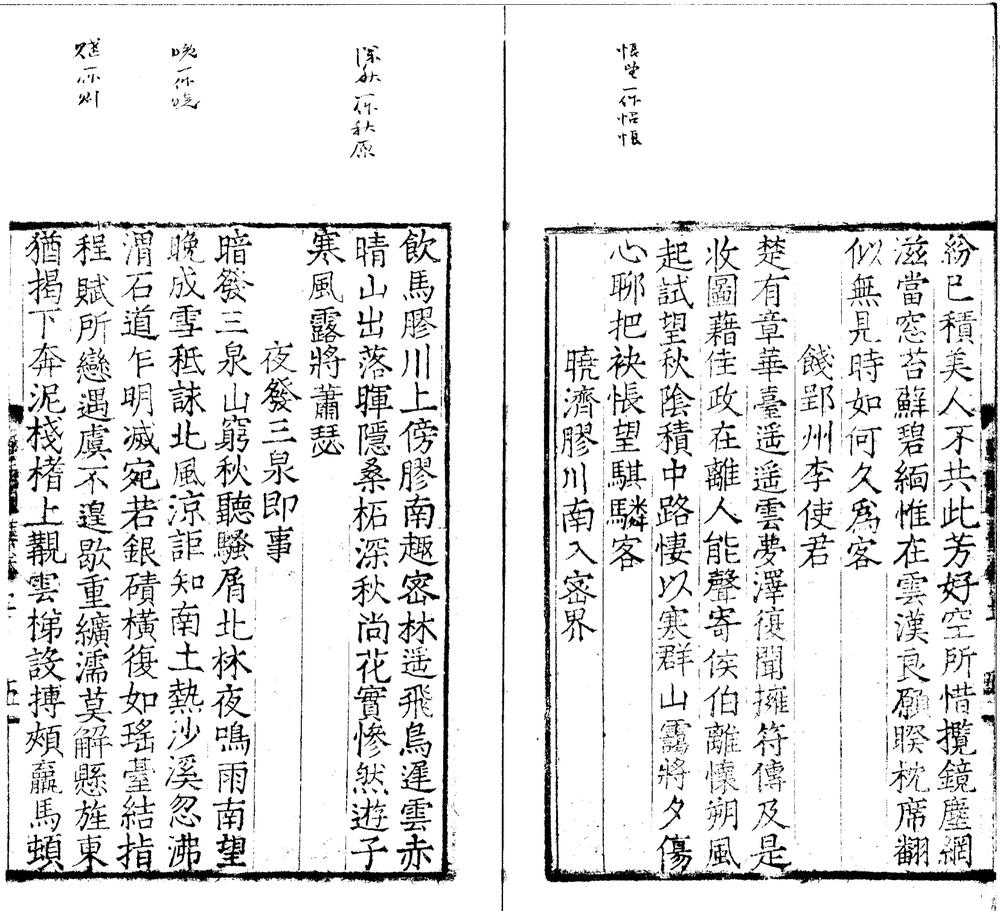 悵望一作怊悵
深秋一作秋原
晚一作曉
蹉一作蹴
紛已積美人不共此芳好空所惜攬鏡塵網
滋當窓苔蘚碧緬惟在雲漢良願睽枕席翻
似無見時如何久爲客
餞郢州李使君
楚有章華臺遥遥雲夢澤復聞擁符傳及是
收圖藉佳政在離人能聲寄侯伯離懷朔風
起試望秋陰積中路悽以寒群山靄將夕傷
心聊把袂悵望騏驎客
曉濟膠川南入密界
飲馬膠川上傍膠南趣密林遥飛鳥遲雲赤
晴山出落暉隱桑柘深秋尚花實慘然遊子
寒風露將蕭瑟
夜發三泉即事
暗發三泉山窮秋聽騷屑北林夜鳴雨南望
晚成雪秪詠北風涼詎知南土熱沙溪忽沸
渭石道乍明滅宛若銀磧橫復如瑤臺結指
程賦所戀遇虞不遑歇重纊濡莫解懸旌東
猶揭下奔泥棧榰上覯雲梯設摶頰羸馬頓